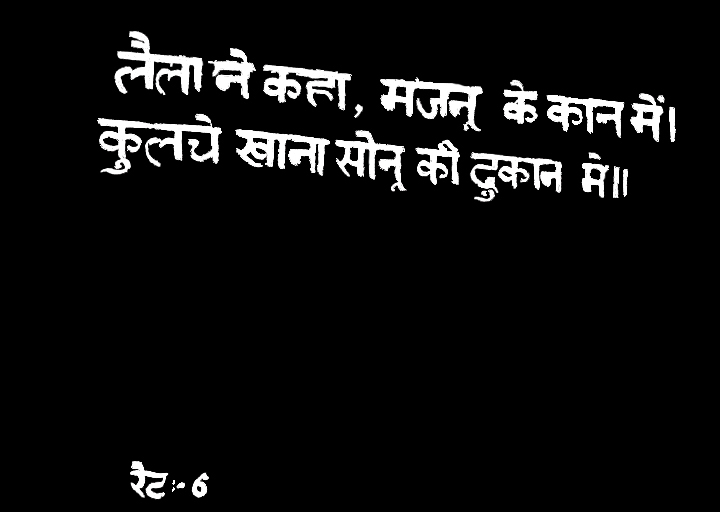 लैला ने कहा, मजनू के कान में।
कुलचे खाना सोनू की दुकान में॥
रैट:- 6